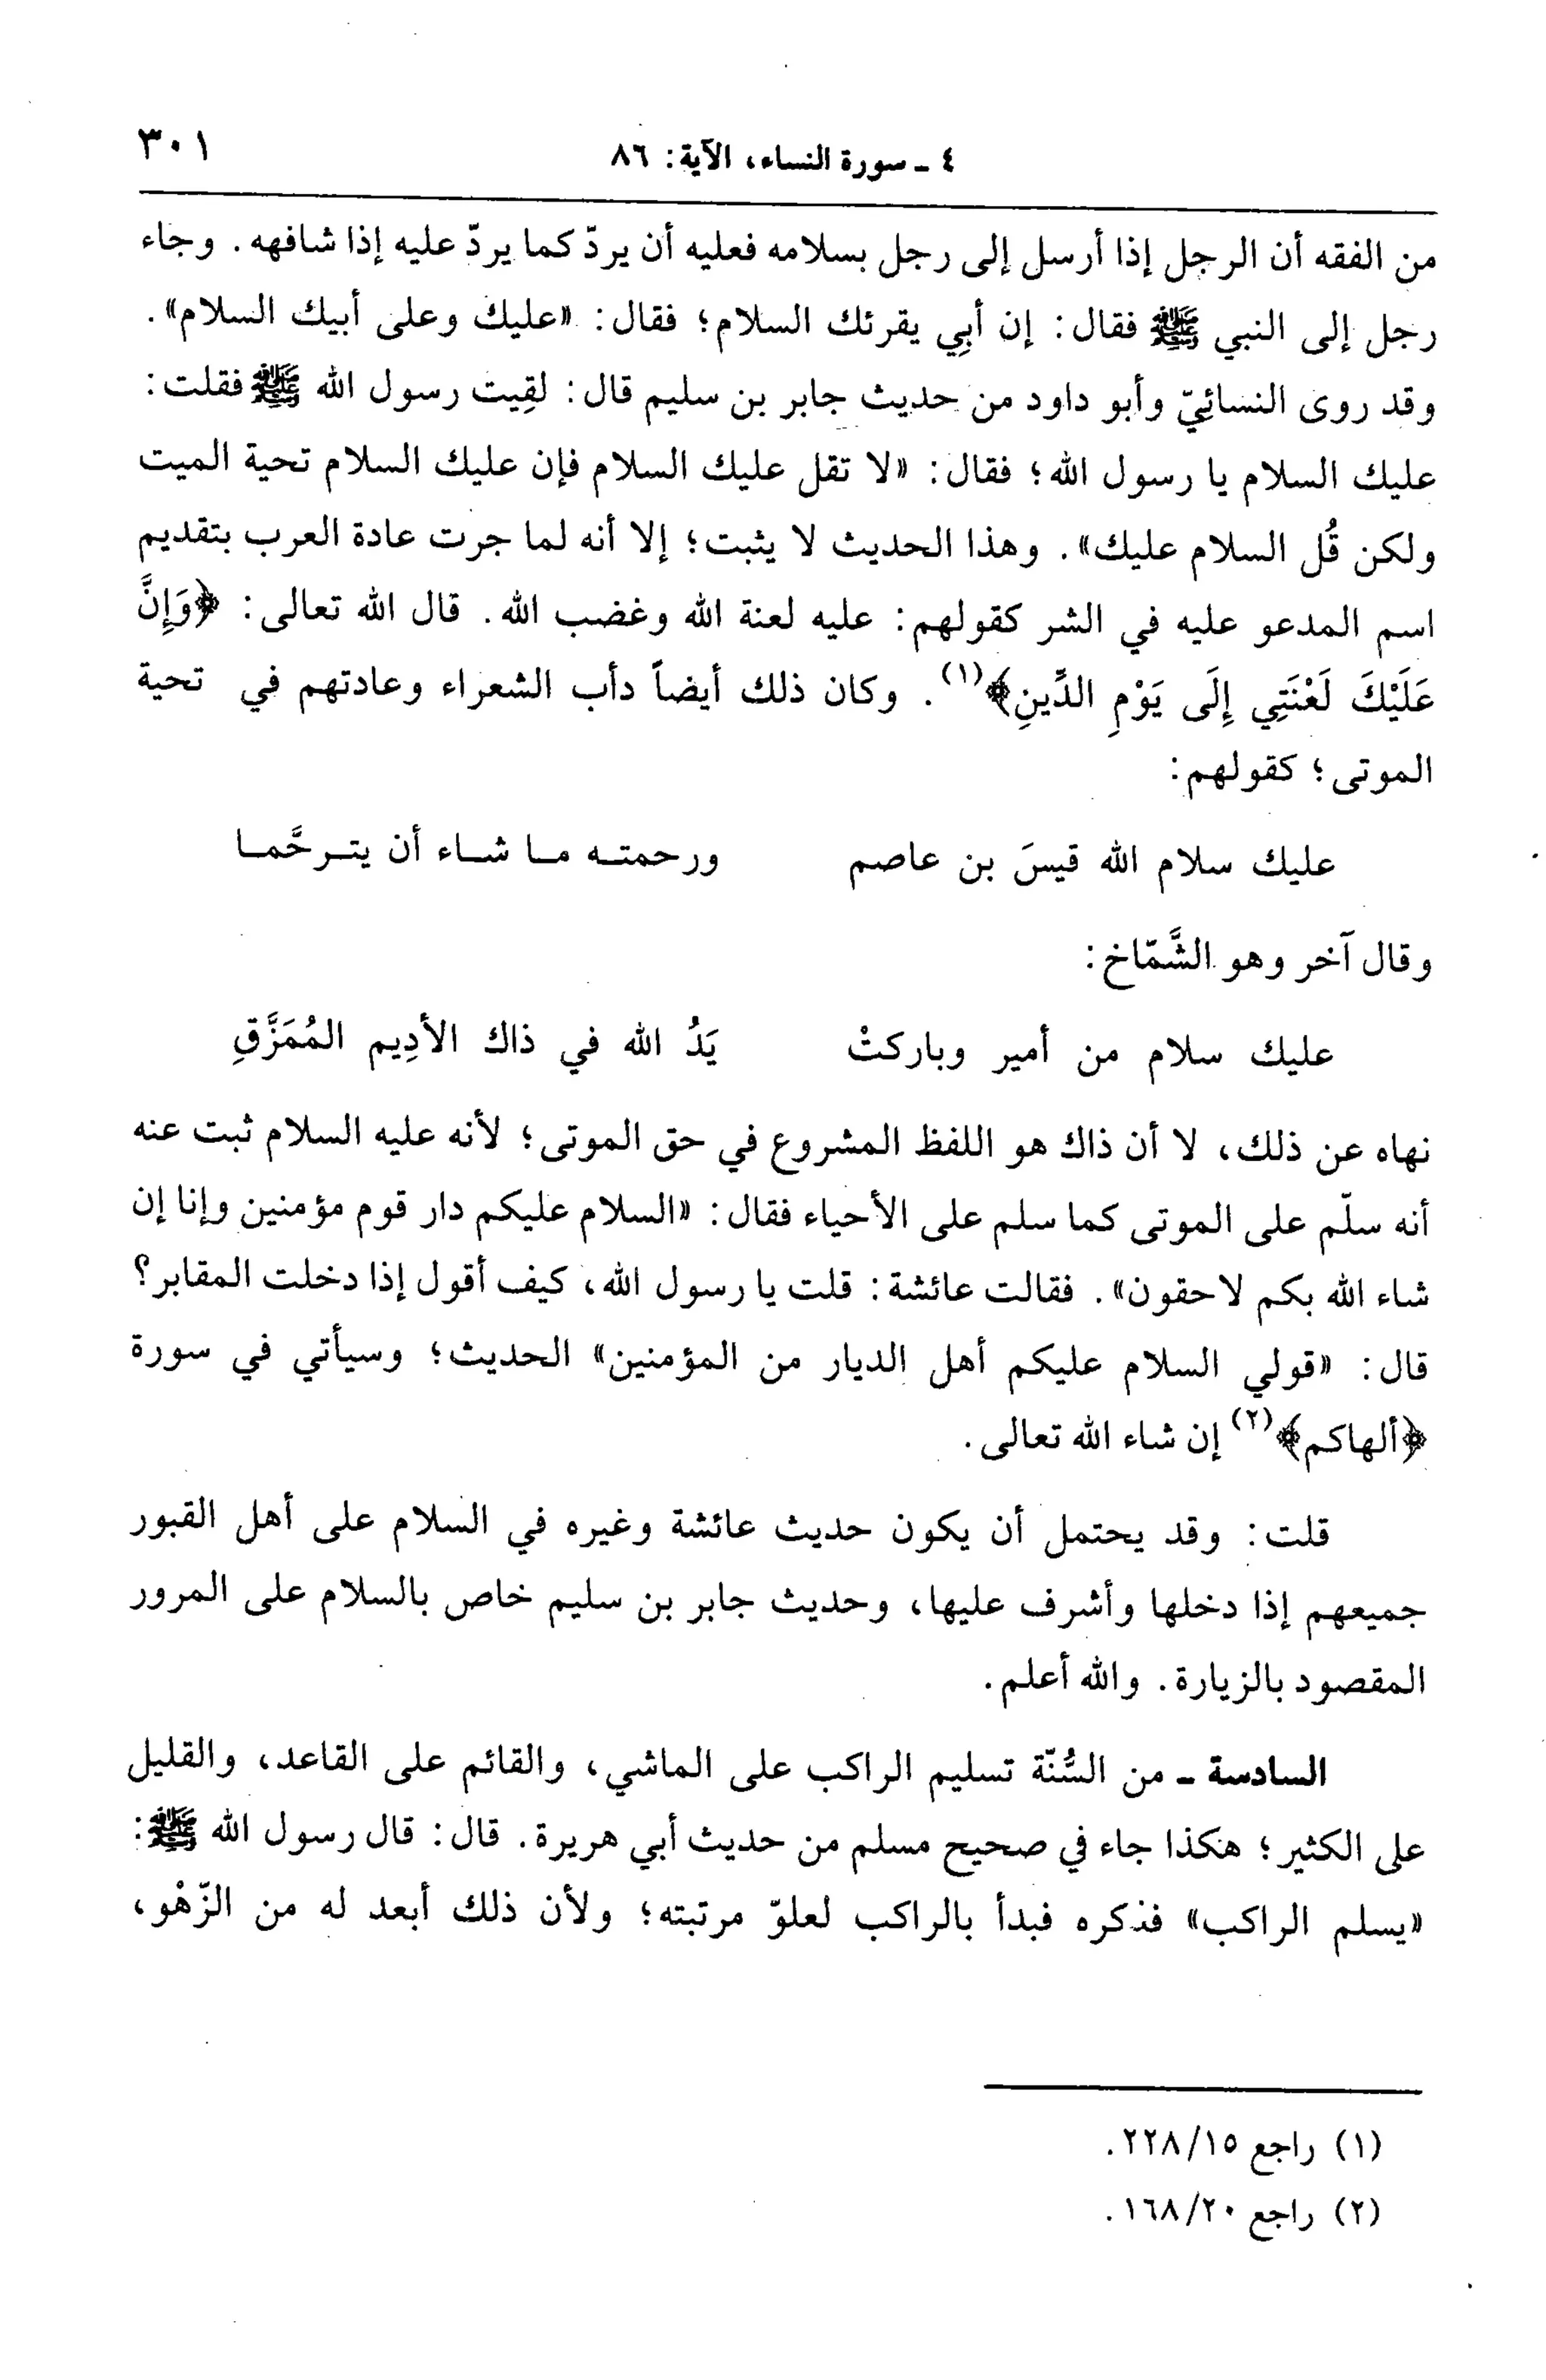 ٤ ـ سورة النساء، الآية: ٨٦
٣٠١
من الفقه أن الرجل إذا أرسل إلى رجل بسلامه فعليه أن يردّ كما يردّ عليه إذا شافهه. وجاء
رجل إلى النبي ﷺ فقال: إن أبِي يقرئك السلام؛ فقال: «عليك وعلى أبيك السلام».
وقد روى النسائيّ وأبو داود من حديث جابر بن سليم قال: لقِيت رسول الله ﷺ فقلت:
عليك السلام يا رسول الله؛ فقال: «لا تقل عليك السلام فإن عليك السلام تحية الميت
ولكن قُل السلام عليك». وهذا الحديث لا يثبت؛ إلا أنه لما جرت عادة العرب بتقديم
اسم المدعو عليه في الشر كقولهم: عليه لعنة الله وغضب الله. قال الله تعالى: ﴿وَإِنَّ
عَلَيْكَ لَعْنَتِي إِلَى يَوْمِ الدِّينِ﴾(١). وكان ذلك أيضاً دأب الشعراء وعادتهم في تحية
الموتى؛ كقولهم:
عليك سلام الله قيسَ بن عاصم ورحمتـه مـا شـاء أن يتـرحَّمـا
وقال آخر وهو الشَّمّاخ:
عليك سلام من أمير وباركتْ يَدُ الله في ذاك الأدِيم المُمَزَّقِ
نهاه عن ذلك، لا أن ذاك هو اللفظ المشروع في حق الموتى؛ لأنه عليه السلام ثبت عنه
أنه سلّم على الموتى كما سلم على الأحياء فقال: «السلام عليكم دار قوم مؤمنين وإنا إن
شاء الله بكم لاحقون». فقالت عائشة: قلت يا رسول الله، كيف أقول إذا دخلت المقابر؟
قال: «قولي السلام عليكم أهل الديار من المؤمنين» الحديث؛ وسيأتي في سورة
﴿ألهاكم﴾(٢) إن شاء الله تعالى.
قلت: وقد يحتمل أن يكون حديث عائشة وغيره في السلام على أهل القبور
جميعهم إذا دخلها وأشرف عليها، وحديث جابر بن سليم خاص بالسلام على المرور
المقصود بالزيارة. والله أعلم.
السادسة ـ من السُّنّة تسليم الراكب على الماشي، والقائم على القاعد، والقليل
على الكثير؛ هكذا جاء في صحيح مسلم من حديث أبي هريرة. قال: قال رسول الله ﷺ:
«يسلم الراكب» فذكره فبدأ بالراكب لعلوّ مرتبته؛ ولأن ذلك أبعد له من الزّهْو،
(١) راجع ٢٢٨/١٥.
(٢) راجع ١٦٨/٢٠.